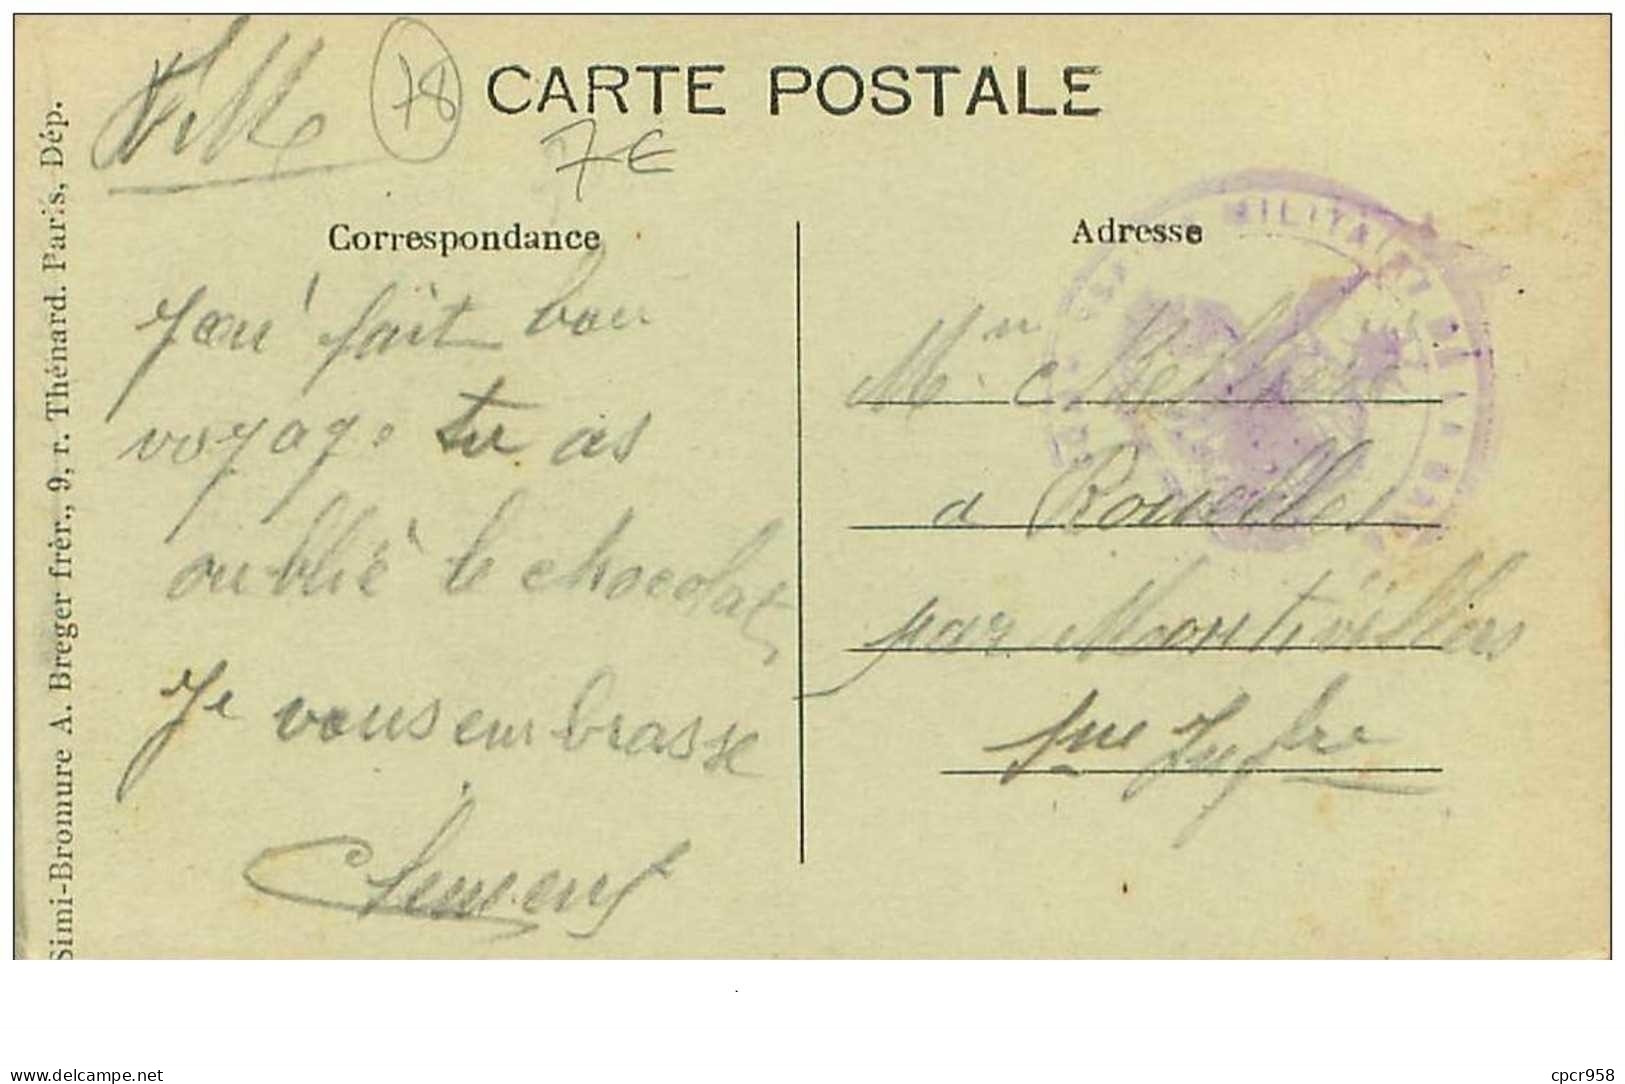 78
CARTE POSTALE
7€
Correspondance
Adresse
MILITAIRE
J'ai fait bon
voyage tu as
oublié le chocolat
Je vous embrasse
Clement
a Rouelles
par Montivilliers
Sne Infre
Simi-Bromure A. Breger frèr., 9, r. Thénard. Paris, Dép.
delcampe.net
cpcr958